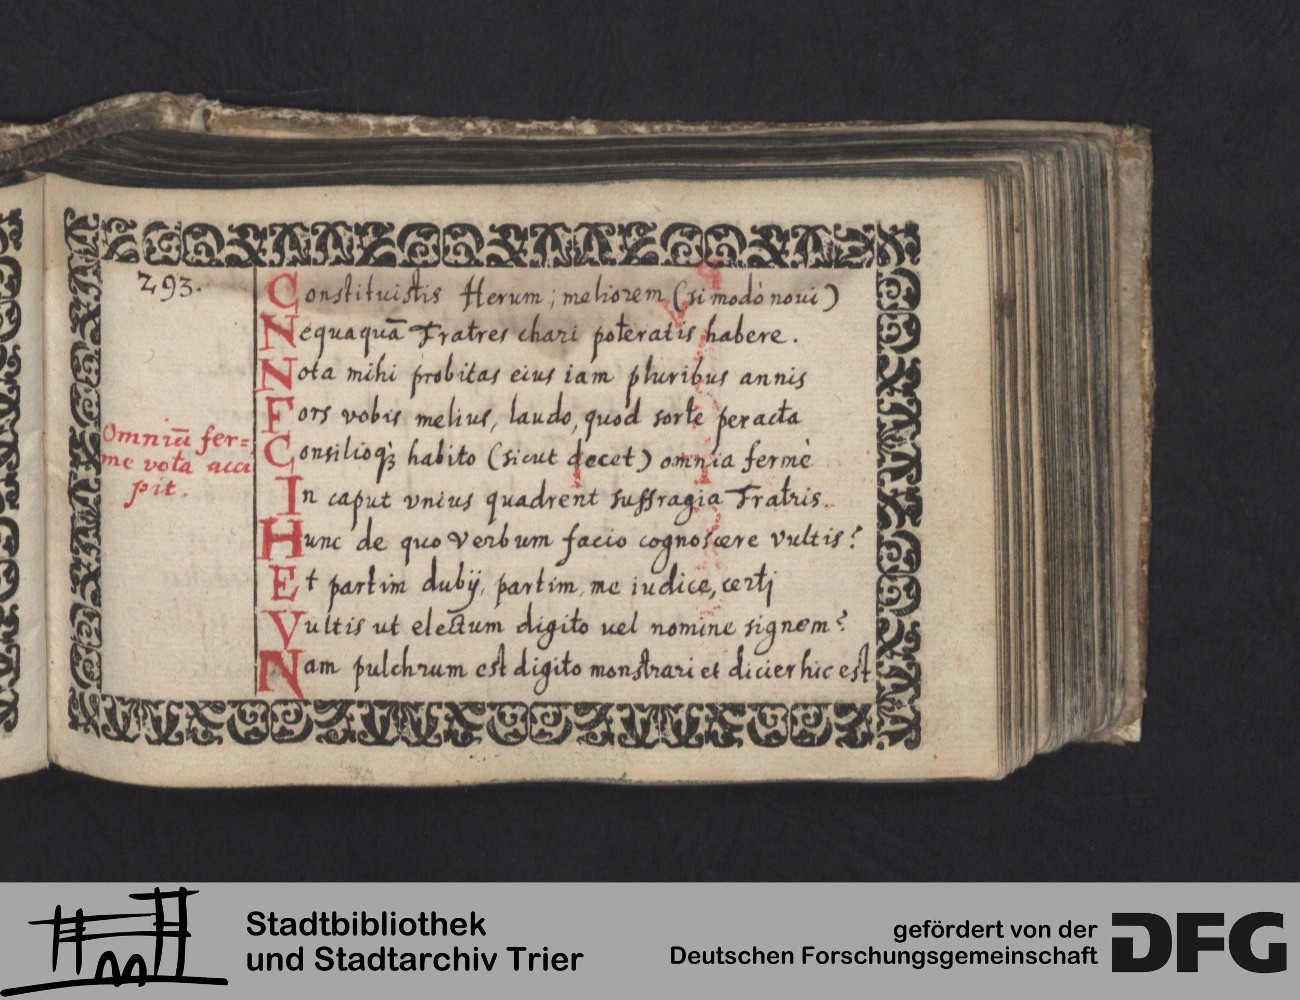 293.
Constituistis Herum; meliorem (si modò noui)
Nequaquā Fratres chari poteratis habere.
Nota mihi probitas eius iam pluribus annis
Fors vobis melius, laudo, quod sorte peracta
Omniū fer=
me vota acci
pit.
Consilioq3 habito (sicut decet) omnia fermè
In caput vnius quadrent suffragia Fratris.
Hunc de quo Verbum facio cognoscere vultis?
Et partim dubij, partim, me iudice, certj
Vultis ut electum digito uel nomine signem?
Nam pulchrum est digito monstrari et dicier hic est
Stadtbibliothek
und Stadtarchiv Trier
gefördert von der
Deutschen Forschungsgemeinschaft
DFG